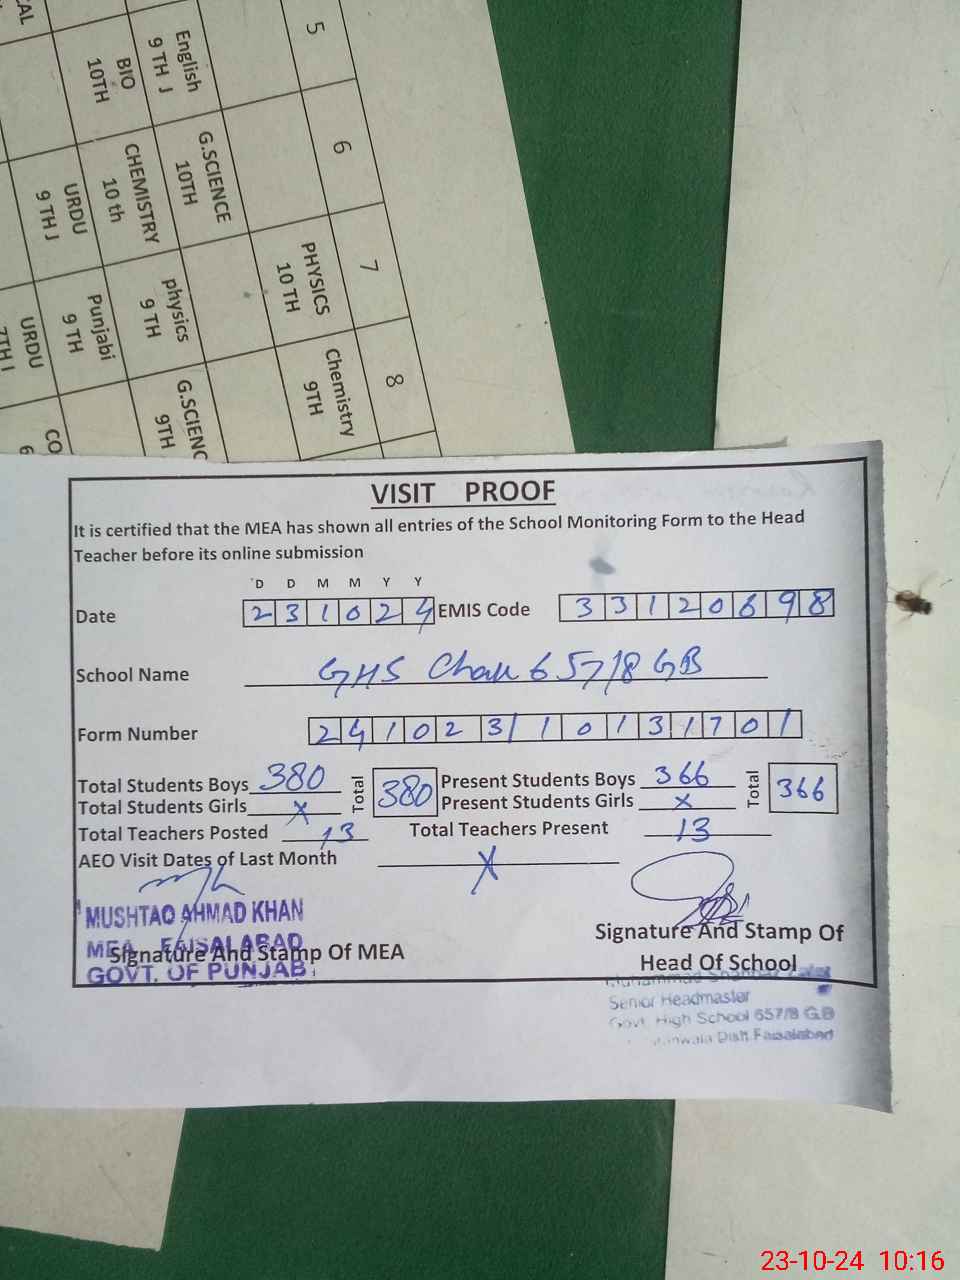 CAL
English
9 TH J
5
BIO
10TH
G.SCIENCE
10TH
6
URDU
9 TH J
CHEMISTRY
10 th
PHYSICS
10 TH
7
URDU
7TH I
Punjabi
9 TH
physics
9 TH
Chemistry
9TH
8
CO
6
G.SCIENC
9TH
VISIT PROOF
It is certified that the MEA has shown all entries of the School Monitoring Form to the Head
Teacher before its online submission
D D M M Y Y
Date 2 3 1 0 2 4 EMIS Code 3 3 1 2 0 6 9 8
School Name GHS Chak 657/8 GB
Form Number 2 4 1 0 2 3 1 1 0 1 3 1 7 0 1
Total Students Boys 380 Total 380 Present Students Boys 366 Total 366
Total Students Girls X Present Students Girls X
Total Teachers Posted 13 Total Teachers Present 13
AEO Visit Dates of Last Month X
MUSHTAQ AHMAD KHAN
MEA FAISALABAD
Signature And Stamp Of MEA
GOVT. OF PUNJAB
Signature And Stamp Of
Head Of School
Muhammad
Senior Headmaster
Govt. High School 657/8 G.B
Distt. Faisalabad
23-10-24 10:16